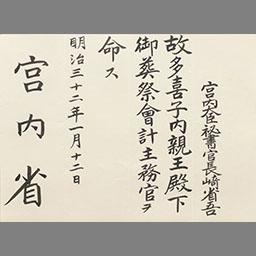 宮内大臣秘書官長崎省吾
故多喜子内親王殿下
御葬祭會計主務官ヲ
命ス
明治三十二年一月十二日
宮内省